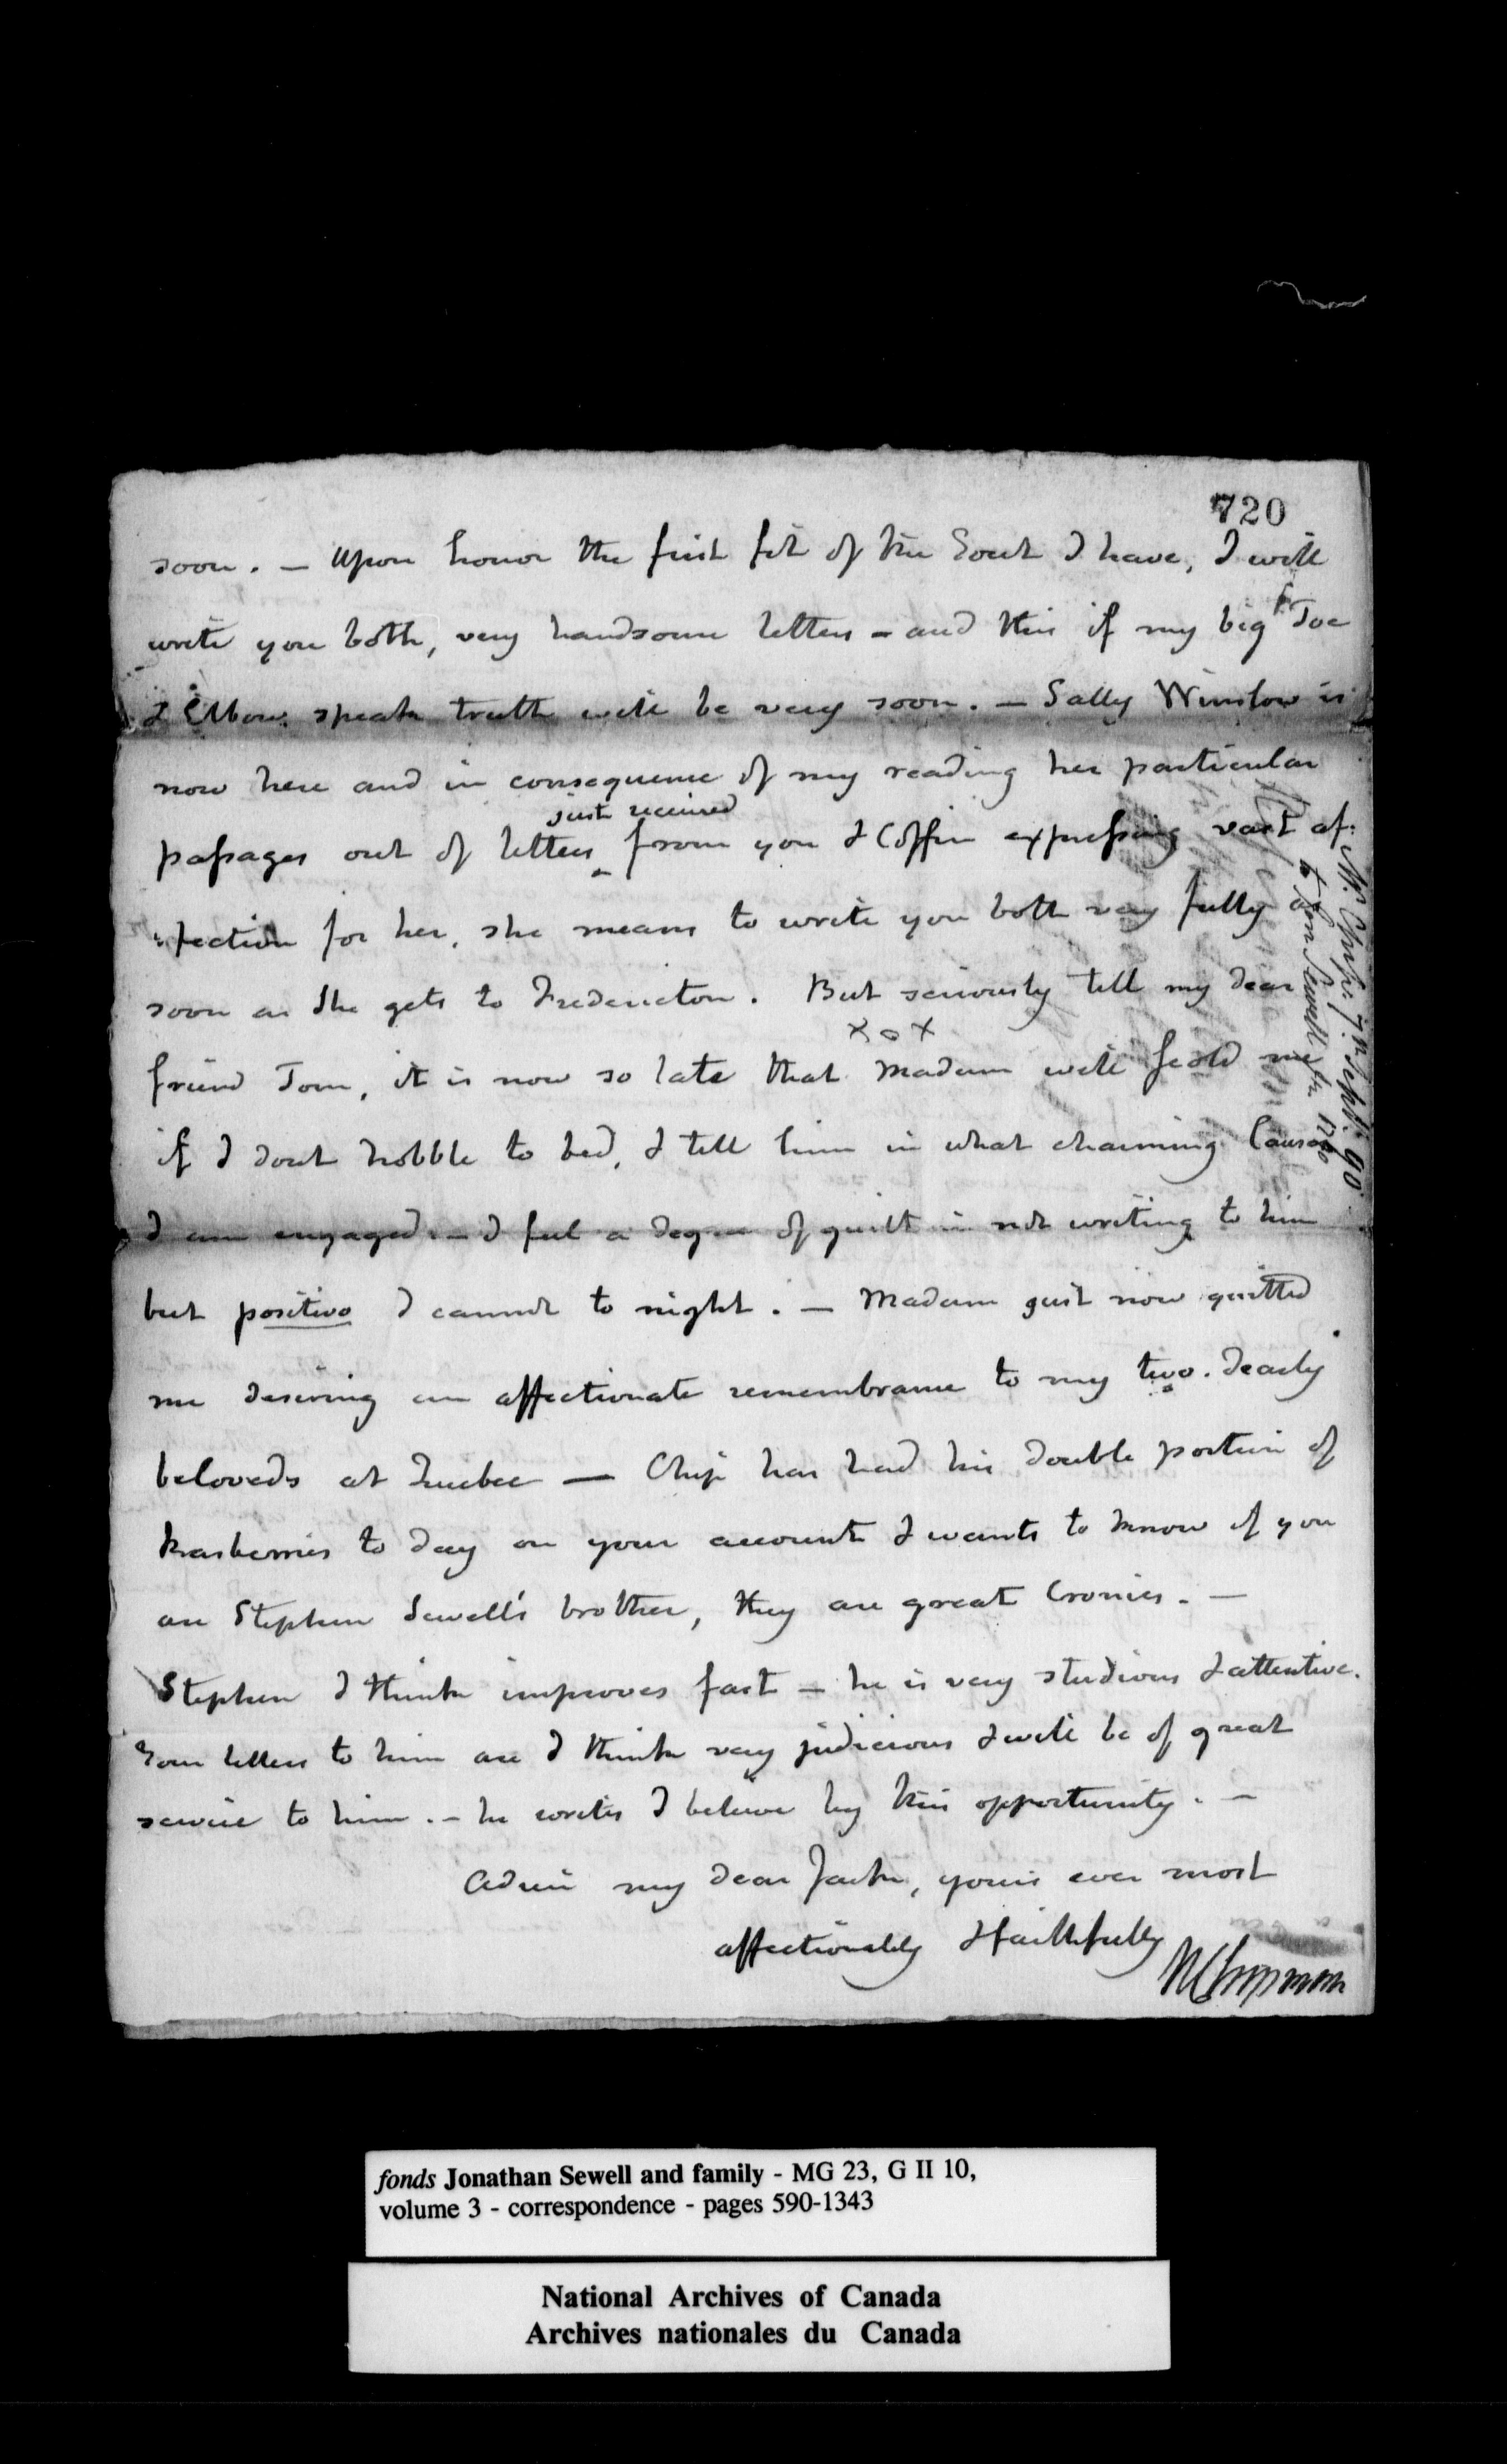 720
soon. — Upon honor the first fit of the Gout I have, I will
write you both, very handsome letters - and this if my big Toe
& Elbow speak truth will be very soon. — Sally Winslow is
now here and in consequence of my reading her particular
just received
passages out of letters ^ from you & Coffin expressing vast af:
:fection for her, she means to write you both very fully as
soon as she gets to Fredericton. But seriously tell my dear
x o x
friend Tom, it is now so late that Madam will scold me
if I dont hobble to bed, & tell him in what charming Causes
I am engaged. — I feel a degree of guilt in not writing to him
but positivo I cannot to night. — Madam just now quitted
me desiring an affectionate remembrance to my two dearly
beloveds at Quebec — Chip has had his double portion of
Rasberries to day on your account & wants to know if you
are Stephen Sewell's brother, they are great Cronies. —
Stephen I think improves fast — he is very studious & attentive.
Your letters to him are I think very judicious & will be of great
service to him. — he writes I believe by this opportunity. —
Adieu my dear Jack, yours ever most
affectionately & faithfully
W Chipman
Mr Chip. 7th Sept. 90
to Jon Sewell 1790
fonds Jonathan Sewell and family - MG 23, G II 10,
volume 3 - correspondence - pages 590-1343
National Archives of Canada
Archives nationales du Canada